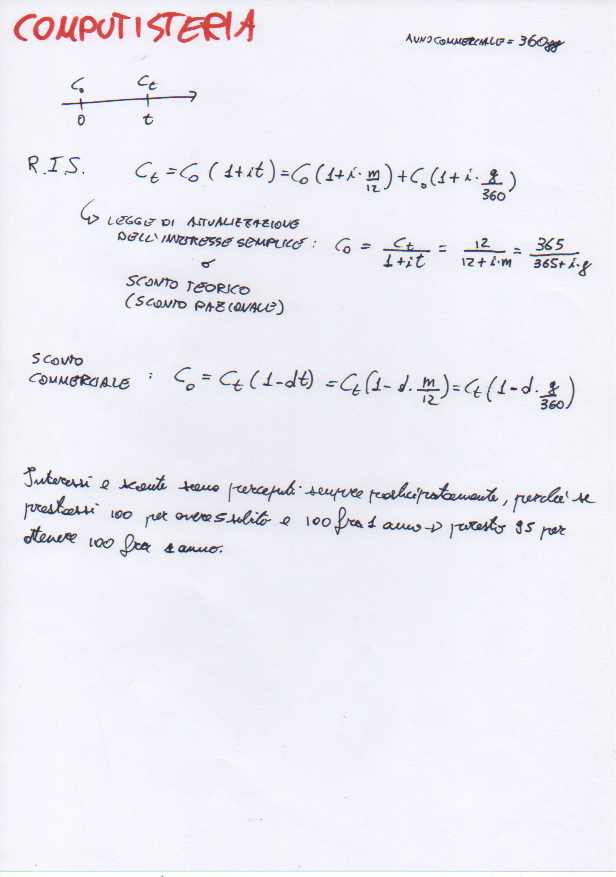 COMPUTISTERIA
ANNO COMMERCIALE = 360gg
C₀ Cₜ
0 t
R.I.S. Cₜ = C₀ (1+it) = C₀ (1+i·m/12) + C₀ (1+i·g/360)
↳ LEGGE DI ATTUALIZZAZIONE
DELL'INTERESSE SEMPLICE : C₀ = Cₜ/(1+it) = 12/(12+i·m) = 365/(365+i·g)
o
SCONTO TEORICO
(SCONTO RAZIONALE)
SCONTO
COMMERCIALE : C₀ = Cₜ (1-dt) = Cₜ (1-d·m/12) = Cₜ (1-d·g/360)
Interessi e sconte sono percepiti sempre posticipatamente, perché se
prestassi 100 per avere 5 subito e 100 fra 1 anno → presto 95 per
ottenere 100 fra 1 anno.